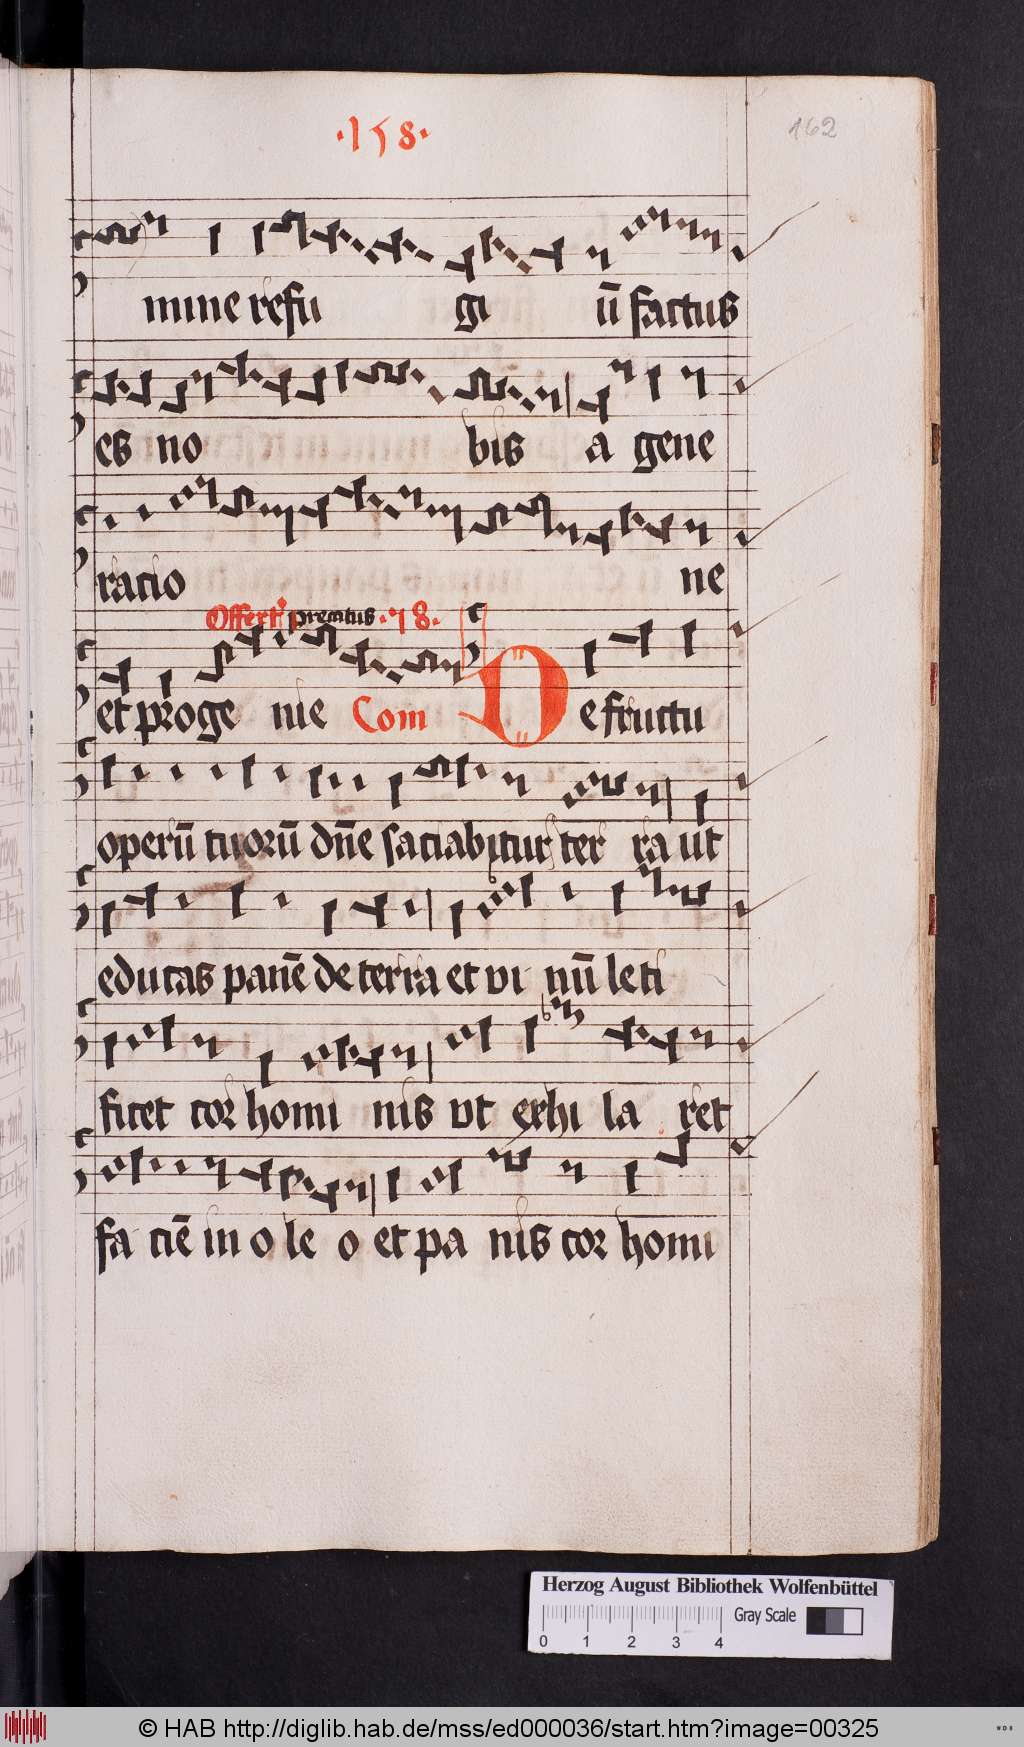 ·158·
162
mine refu gi ū factus
es no bis a gene
ratio ne
Offert precatus ·78·
et proge nie Com De fructu
operū tuorū dn̄e saciabitur ter ra ut
educas panē de terra et vi nū leti
ficet cor homi nis ut exhi la ret
fa ciē in o le o et pa nis cor homi
Herzog August Bibliothek Wolfenbüttel
Gray Scale
0 1 2 3 4
© HAB http://diglib.hab.de/mss/ed000036/start.htm?image=00325